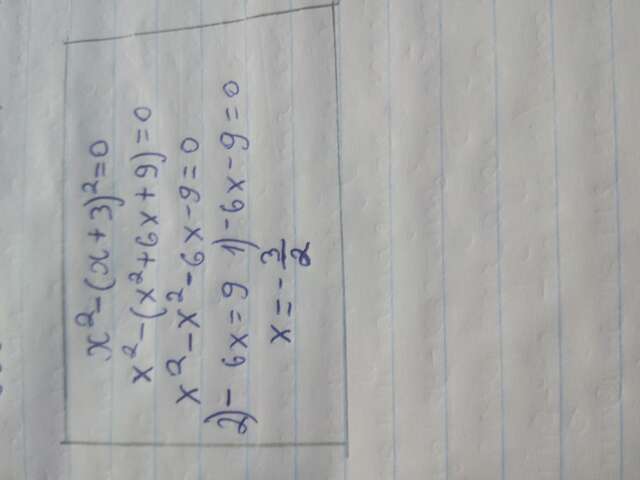 x²-(x+3)²=0
x²-(x²+6x+9)=0
x²-x²-6x-9=0
2)-6x=9 1)-6x-9=0
x=-3/2